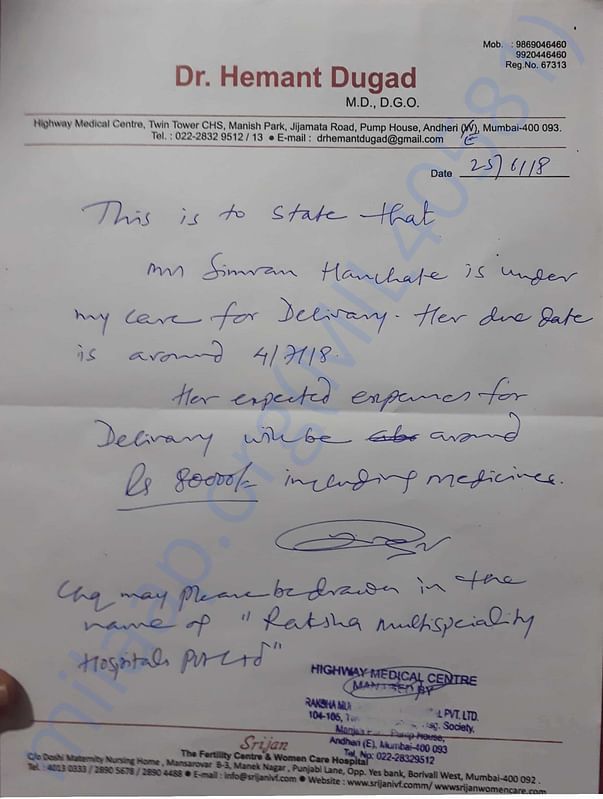 Mob. : 9869046460
9920446460
Reg.No. 67313
Dr. Hemant Dugad
M.D., D.G.O.
Highway Medical Centre, Twin Tower CHS, Manish Park, Jijamata Road, Pump House, Andheri (W), Mumbai-400 093.
E
Tel. : 022-2832 9512 / 13 ● E-mail : drhemantdugad@gmail.com
Date 25/6/18
This is to state that
Mrs Simran Hanchate is under
my care for Delivary. Her due date
is around 4/7/18.
Her expected expenses for
Delivary will be around
Rs 80000/- including medicines.
Chq may please be drawn in the
name of "Raksha multispeciality
Hospitals Pvt Ltd"
HIGHWAY MEDICAL CENTRE
MANAGED BY
RAKSHA L PVT. LTD.
104-105, Society,
Pump House,
Andheri (E), Mumbai-400 093
Tel, No: 022-28329512
Srijan
The Fertility Centre & Women Care Hospital
C/o Doshi Maternity Nursing Home , Mansarovar B-3, Manek Nagar , Punjabi Lane, Opp. Yes bank, Borivali West, Mumbai-400 092 .
Tel. : 4013 0333 / 2890 5678 / 2890 4488 ● E-mail : info@srijanivf.com ● Website : www.srijanivf.com/ wwwsrijanwomencare.com
milaap.org(MIL40581)